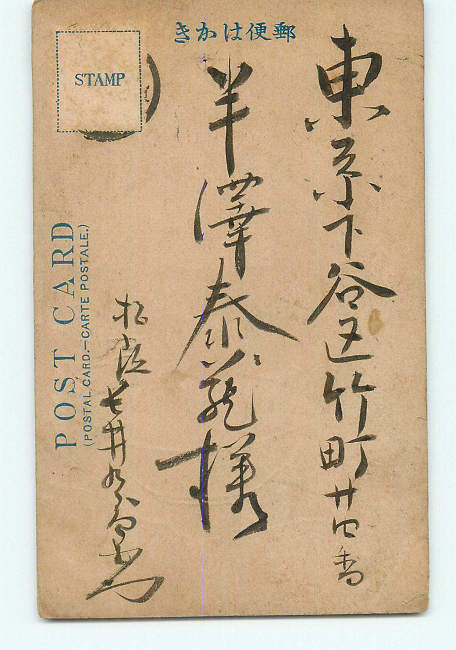 郵便はかき
STAMP
東京下谷区竹町廿番
半澤泰蔵様
七井
POST CARD
(POSTAL CARD.—CARTE POSTALE.)